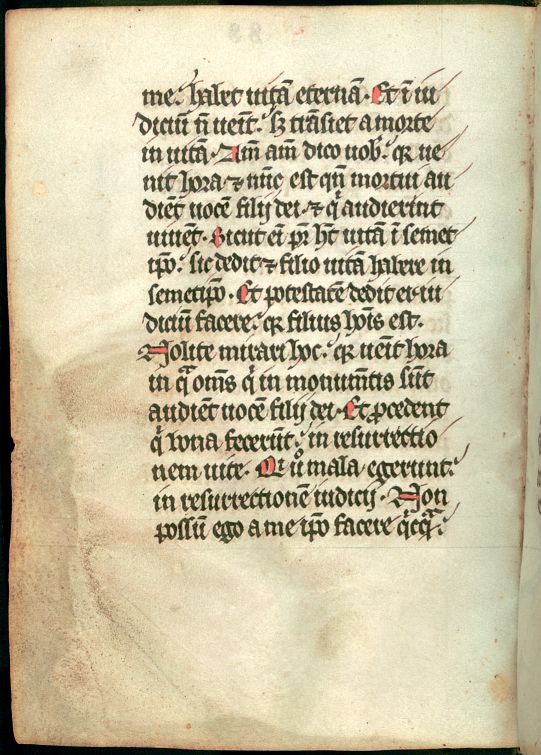 me. habet uitā eternā. Et ī iu
diciū n̄ ueīt. ꜩ trāsiet a morte
in uitā. Am̄ am̄ dico uob̵. qꝛ ue
nit hora ⁊ nūc est qn̄ mortui au
diēt uocē filij dei. ⁊ qͥ audierint
uiuēt. Sicut eī pr̄ hꝫ uitā ī semet
ip̄o. sic dedit ⁊ filio uitā habere in
semetip̄o. Et potestatē dedit ei iu
diciū facere. qꝛ filius hoīs est.
Nolite mirari hoc. qꝛ ueīt hora
in qᵃ om̄s qͥ in monumētis sūt
audiēt uocē filij dei. Et ꝓcedent
qͥ bona fecerūt. in resurrectio
nem uite. Qͥ uͦ mala egerunt.
in resurrectionē iudicij. Non
possū ego a me ip̄o facere qͥcqᵃ.